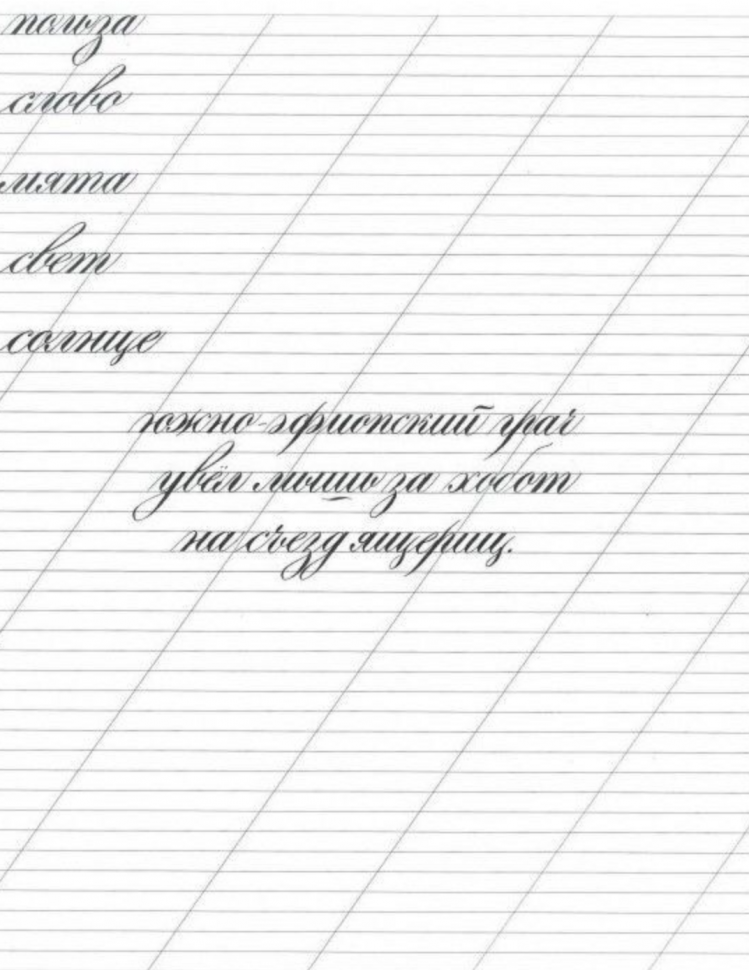 польза
слово
мята
свет
солнце
южно-эфиопский грач
увёл мышь за хобот
на съезд ящериц.